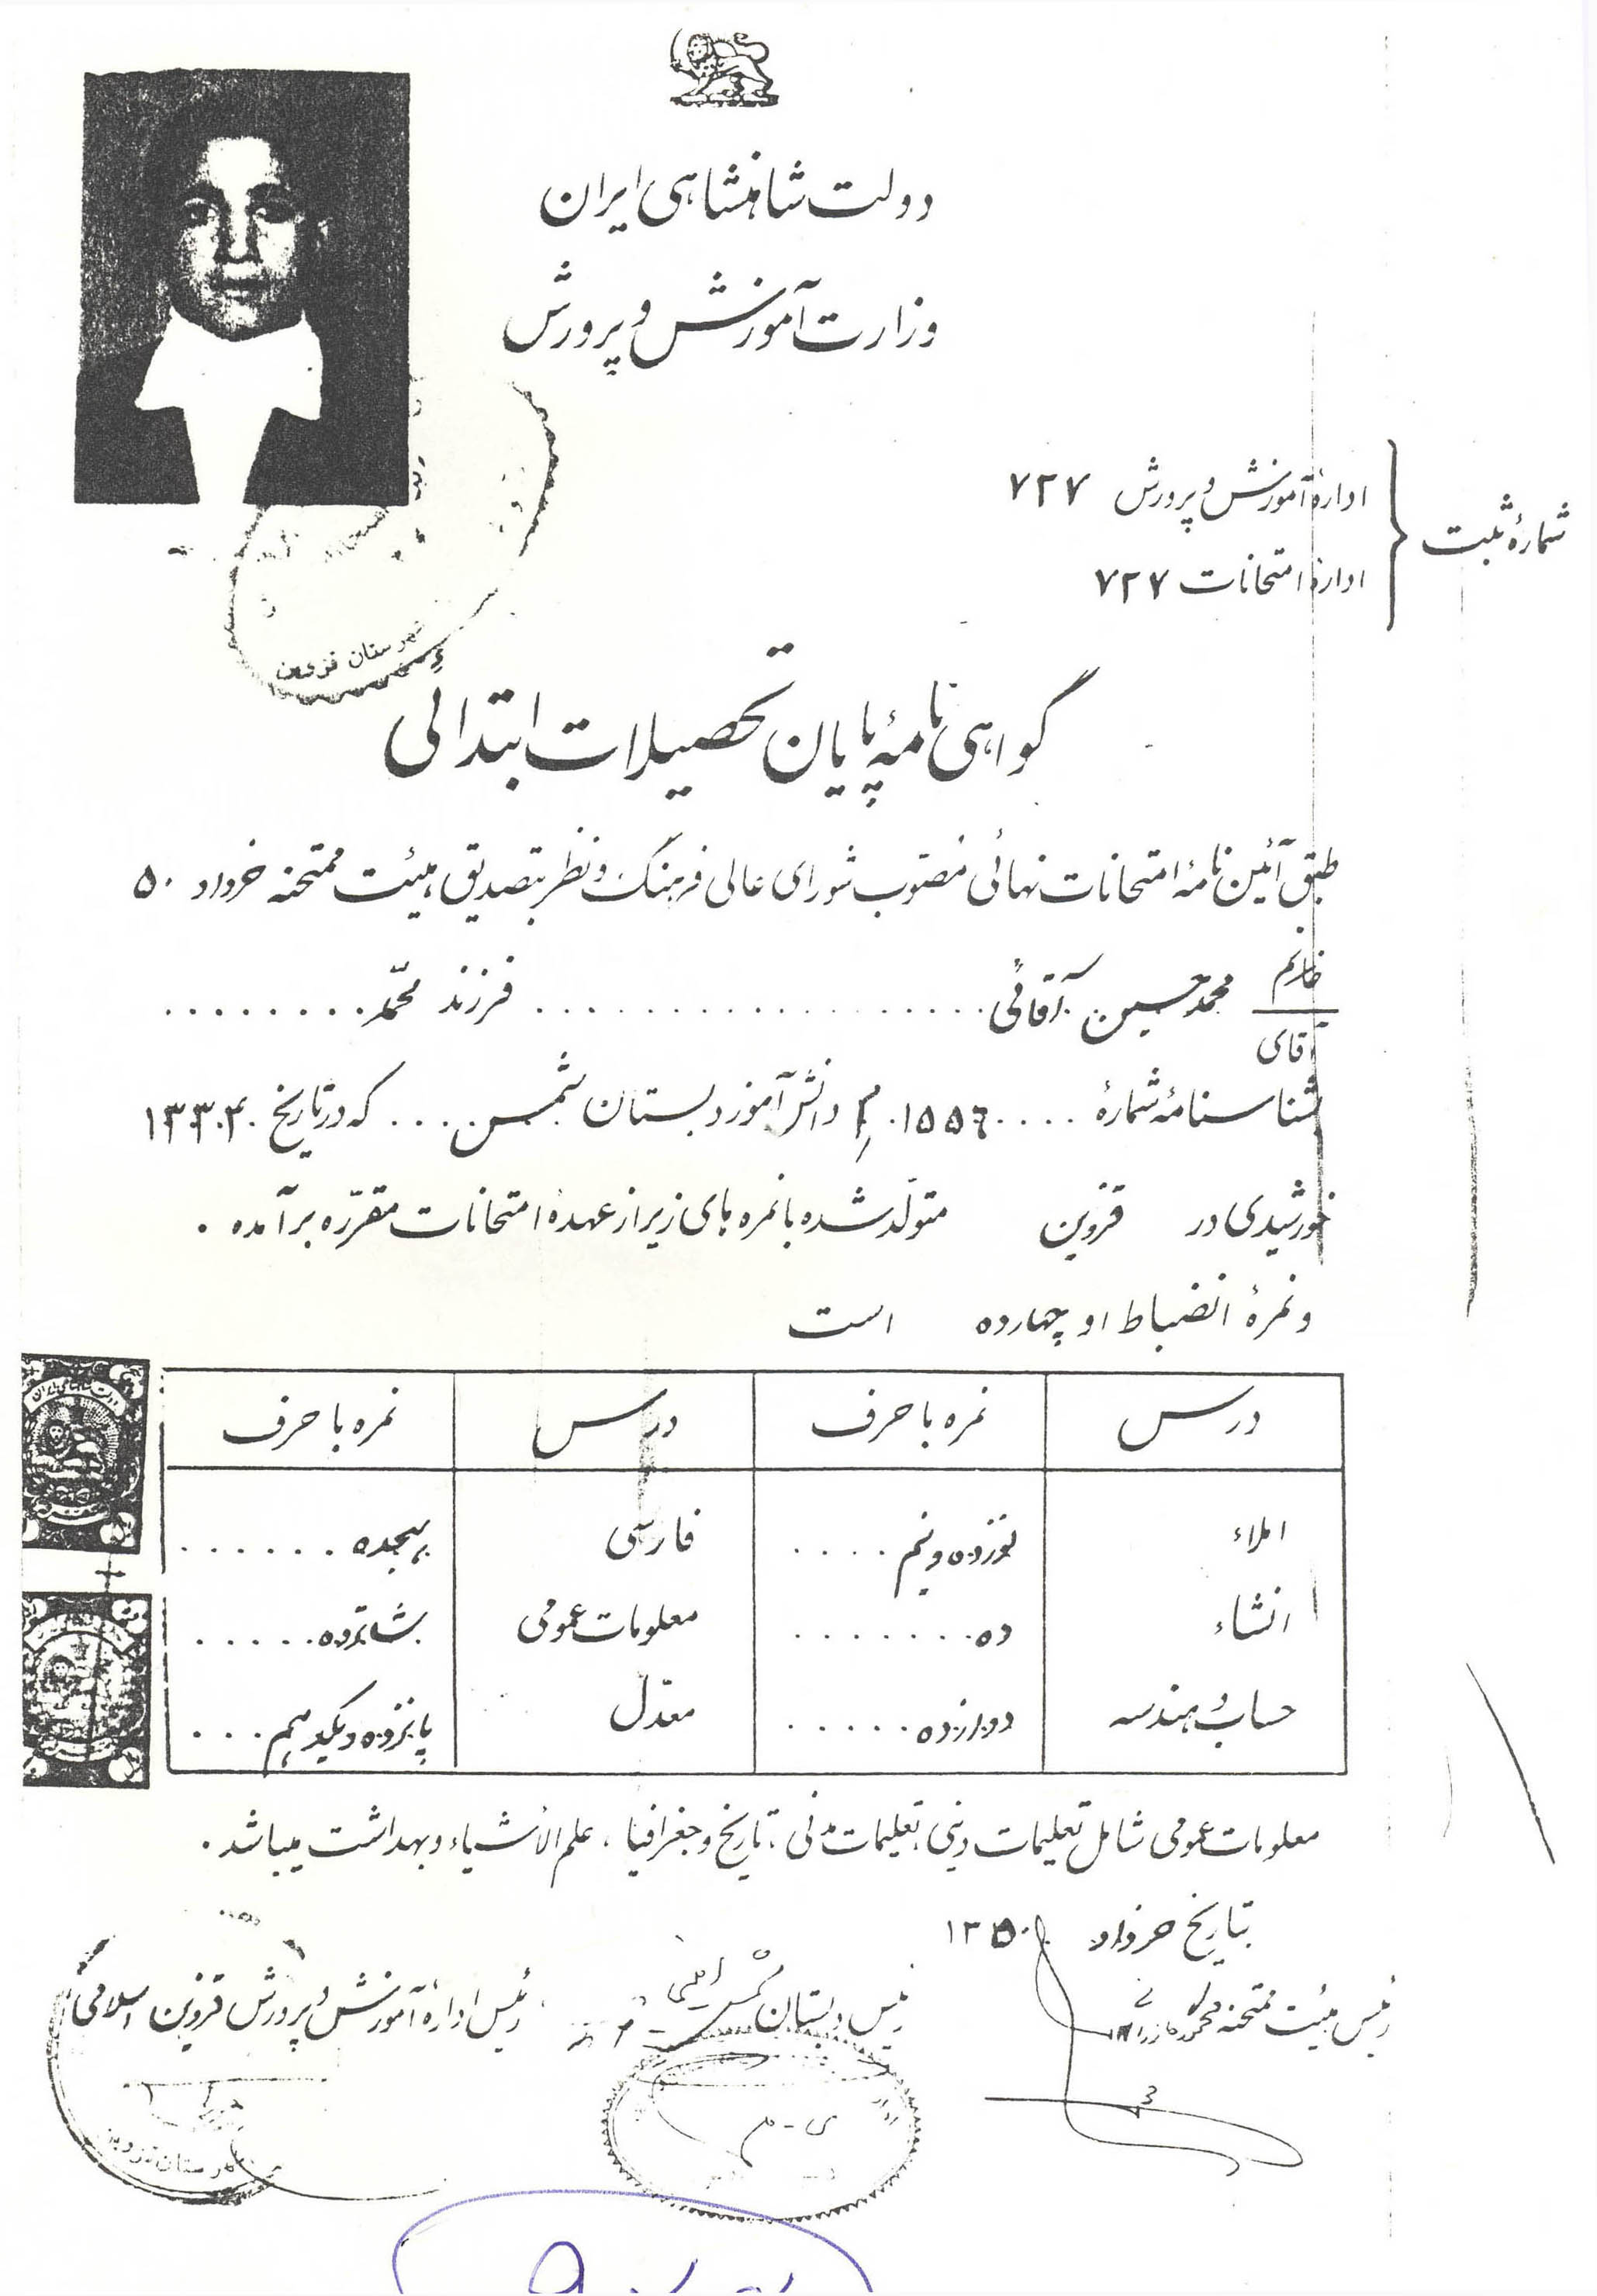 دولت شاهنشاهی ایران
وزارت آموزش و پرورش
شمارهٔ ثبت
ادارهٔ آموزش و پرورش ۷۲۷
ادارهٔ امتحانات ۷۲۷
شهرستان قزوین
گواهی نامهٔ پایان تحصیلات ابتدائی
طبق آئین نامهٔ امتحانات نهائی مصوب شورای عالی فرهنگ و نظر بتصدیق هیئت ممتحنه خرداد ۵۰
خانم
آقای
محمد حسین آقائی .................. فرزند محمد .........
شناسنامهٔ شمارهٔ .....۱۵۵۶. دانش آموز دبستان شمس.... که در تاریخ ۱۳۳۰.۳.۴
خورشیدی در قزوین متولد شده با نمره های زیر از عهدهٔ امتحانات مقرره برآمده .
و نمرهٔ انضباط او چهارده است
درس نمره با حرف درس نمره با حرف
املاء نوزده و نیم .... فارسی هیجده .......
انشاء ده ........ معلومات عمومی شانزده ......
حساب و هندسه دوازده ...... معدل پانزده و یکدهم ....
معلومات عمومی شامل تعلیمات دینی ، تعلیمات مدنی ، تاریخ و جغرافیا ، علم الاشیاء و بهداشت میباشد .
بتاریخ خرداد ۱۳۵۰
رئیس هیئت ممتحنه
رئیس دبستان شمس
رئیس ادارهٔ آموزش و پرورش قزوین اسلامی
شهرستان قزوین